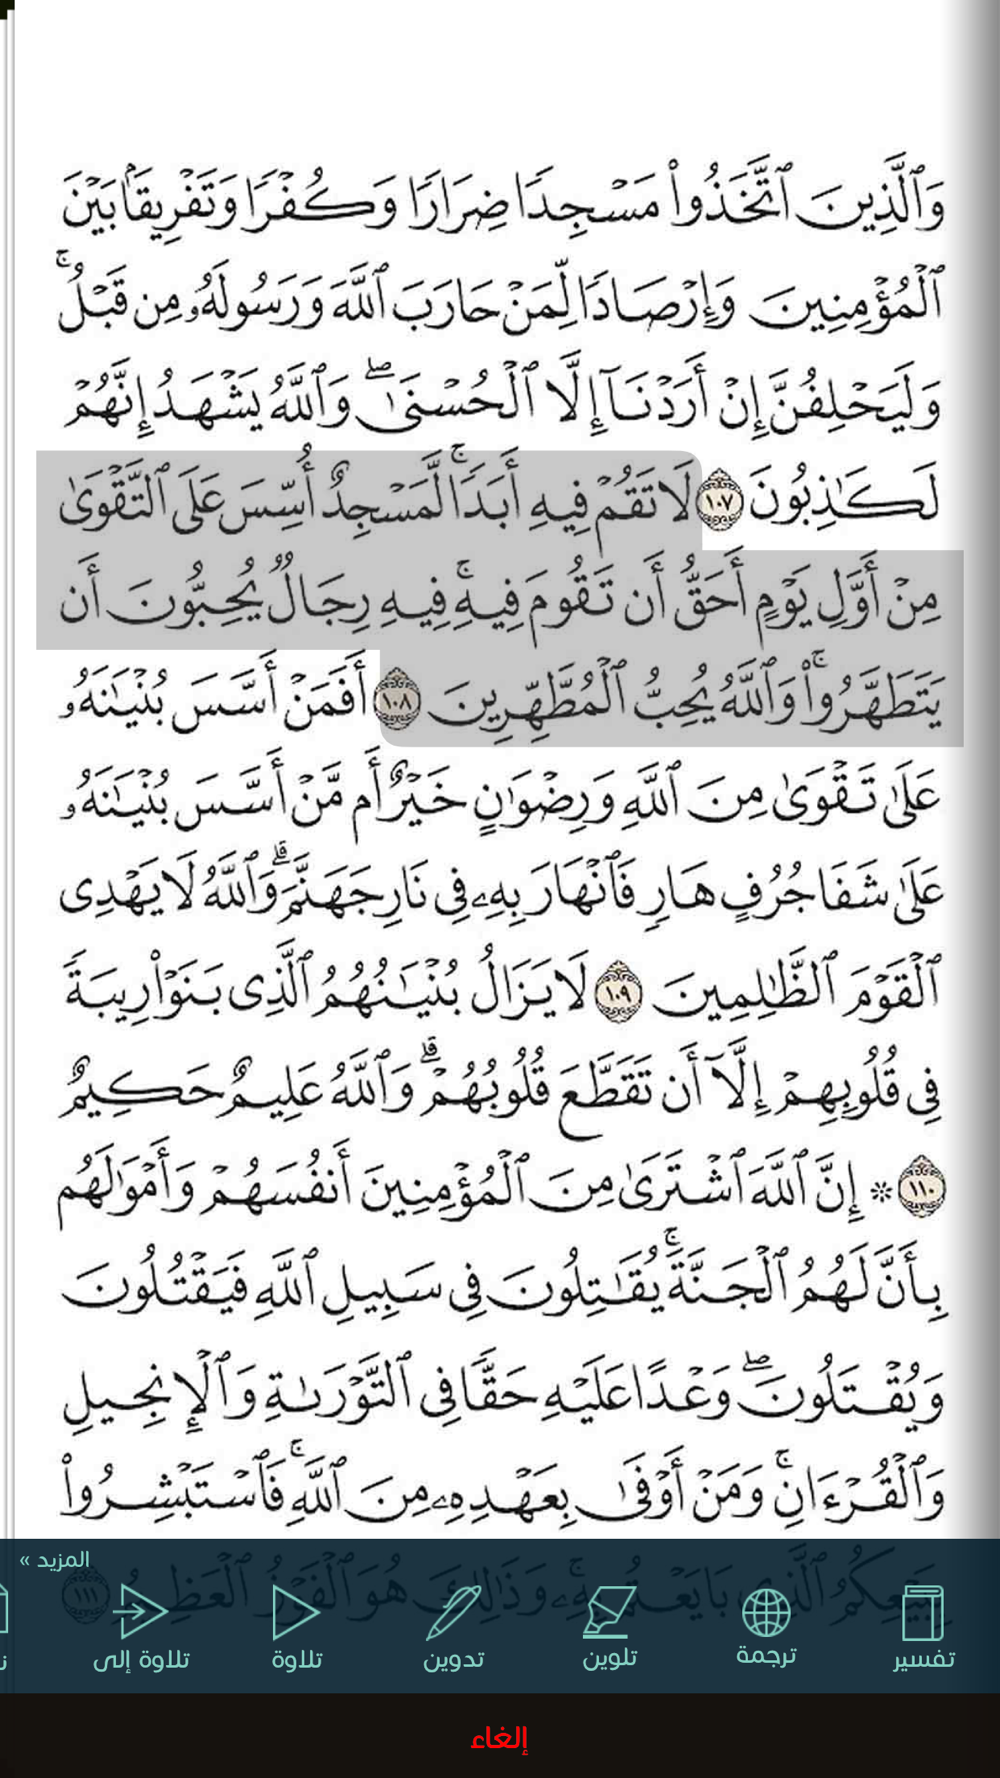 وَٱلَّذِينَ ٱتَّخَذُوا۟ مَسْجِدًا ضِرَارًا وَكُفْرًا وَتَفْرِيقًۢا بَيْنَ
ٱلْمُؤْمِنِينَ وَإِرْصَادًا لِّمَنْ حَارَبَ ٱللَّهَ وَرَسُولَهُۥ مِن قَبْلُ ۚ
وَلَيَحْلِفُنَّ إِنْ أَرَدْنَآ إِلَّا ٱلْحُسْنَىٰ ۖ وَٱللَّهُ يَشْهَدُ إِنَّهُمْ
لَكَـٰذِبُونَ ١٠٧ لَا تَقُمْ فِيهِ أَبَدًا ۚ لَّمَسْجِدٌ أُسِّسَ عَلَى ٱلتَّقْوَىٰ
مِنْ أَوَّلِ يَوْمٍ أَحَقُّ أَن تَقُومَ فِيهِ ۚ فِيهِ رِجَالٌ يُحِبُّونَ أَن
يَتَطَهَّرُوا۟ ۚ وَٱللَّهُ يُحِبُّ ٱلْمُطَّهِّرِينَ ١٠٨ أَفَمَنْ أَسَّسَ بُنْيَـٰنَهُۥ
عَلَىٰ تَقْوَىٰ مِنَ ٱللَّهِ وَرِضْوَٰنٍ خَيْرٌ أَم مَّنْ أَسَّسَ بُنْيَـٰنَهُۥ
عَلَىٰ شَفَا جُرُفٍ هَارٍ فَٱنْهَارَ بِهِۦ فِى نَارِ جَهَنَّمَ ۗ وَٱللَّهُ لَا يَهْدِى
ٱلْقَوْمَ ٱلظَّـٰلِمِينَ ١٠٩ لَا يَزَالُ بُنْيَـٰنُهُمُ ٱلَّذِى بَنَوْا۟ رِيبَةً
فِى قُلُوبِهِمْ إِلَّآ أَن تَقَطَّعَ قُلُوبُهُمْ ۗ وَٱللَّهُ عَلِيمٌ حَكِيمٌ
١١٠ ۞ إِنَّ ٱللَّهَ ٱشْتَرَىٰ مِنَ ٱلْمُؤْمِنِينَ أَنفُسَهُمْ وَأَمْوَٰلَهُم
بِأَنَّ لَهُمُ ٱلْجَنَّةَ ۚ يُقَـٰتِلُونَ فِى سَبِيلِ ٱللَّهِ فَيَقْتُلُونَ
وَيُقْتَلُونَ ۖ وَعْدًا عَلَيْهِ حَقًّا فِى ٱلتَّوْرَىٰةِ وَٱلْإِنجِيلِ
وَٱلْقُرْءَانِ ۚ وَمَنْ أَوْفَىٰ بِعَهْدِهِۦ مِنَ ٱللَّهِ ۚ فَٱسْتَبْشِرُوا۟
بِبَيْعِكُمُ ٱلَّذِى بَايَعْتُم بِهِۦ ۚ وَذَٰلِكَ هُوَ ٱلْفَوْزُ ٱلْعَظِيمُ ١١١
المزيد »
تفسير ترجمة تلوين تدوين تلاوة تلاوة إلى
إلغاء